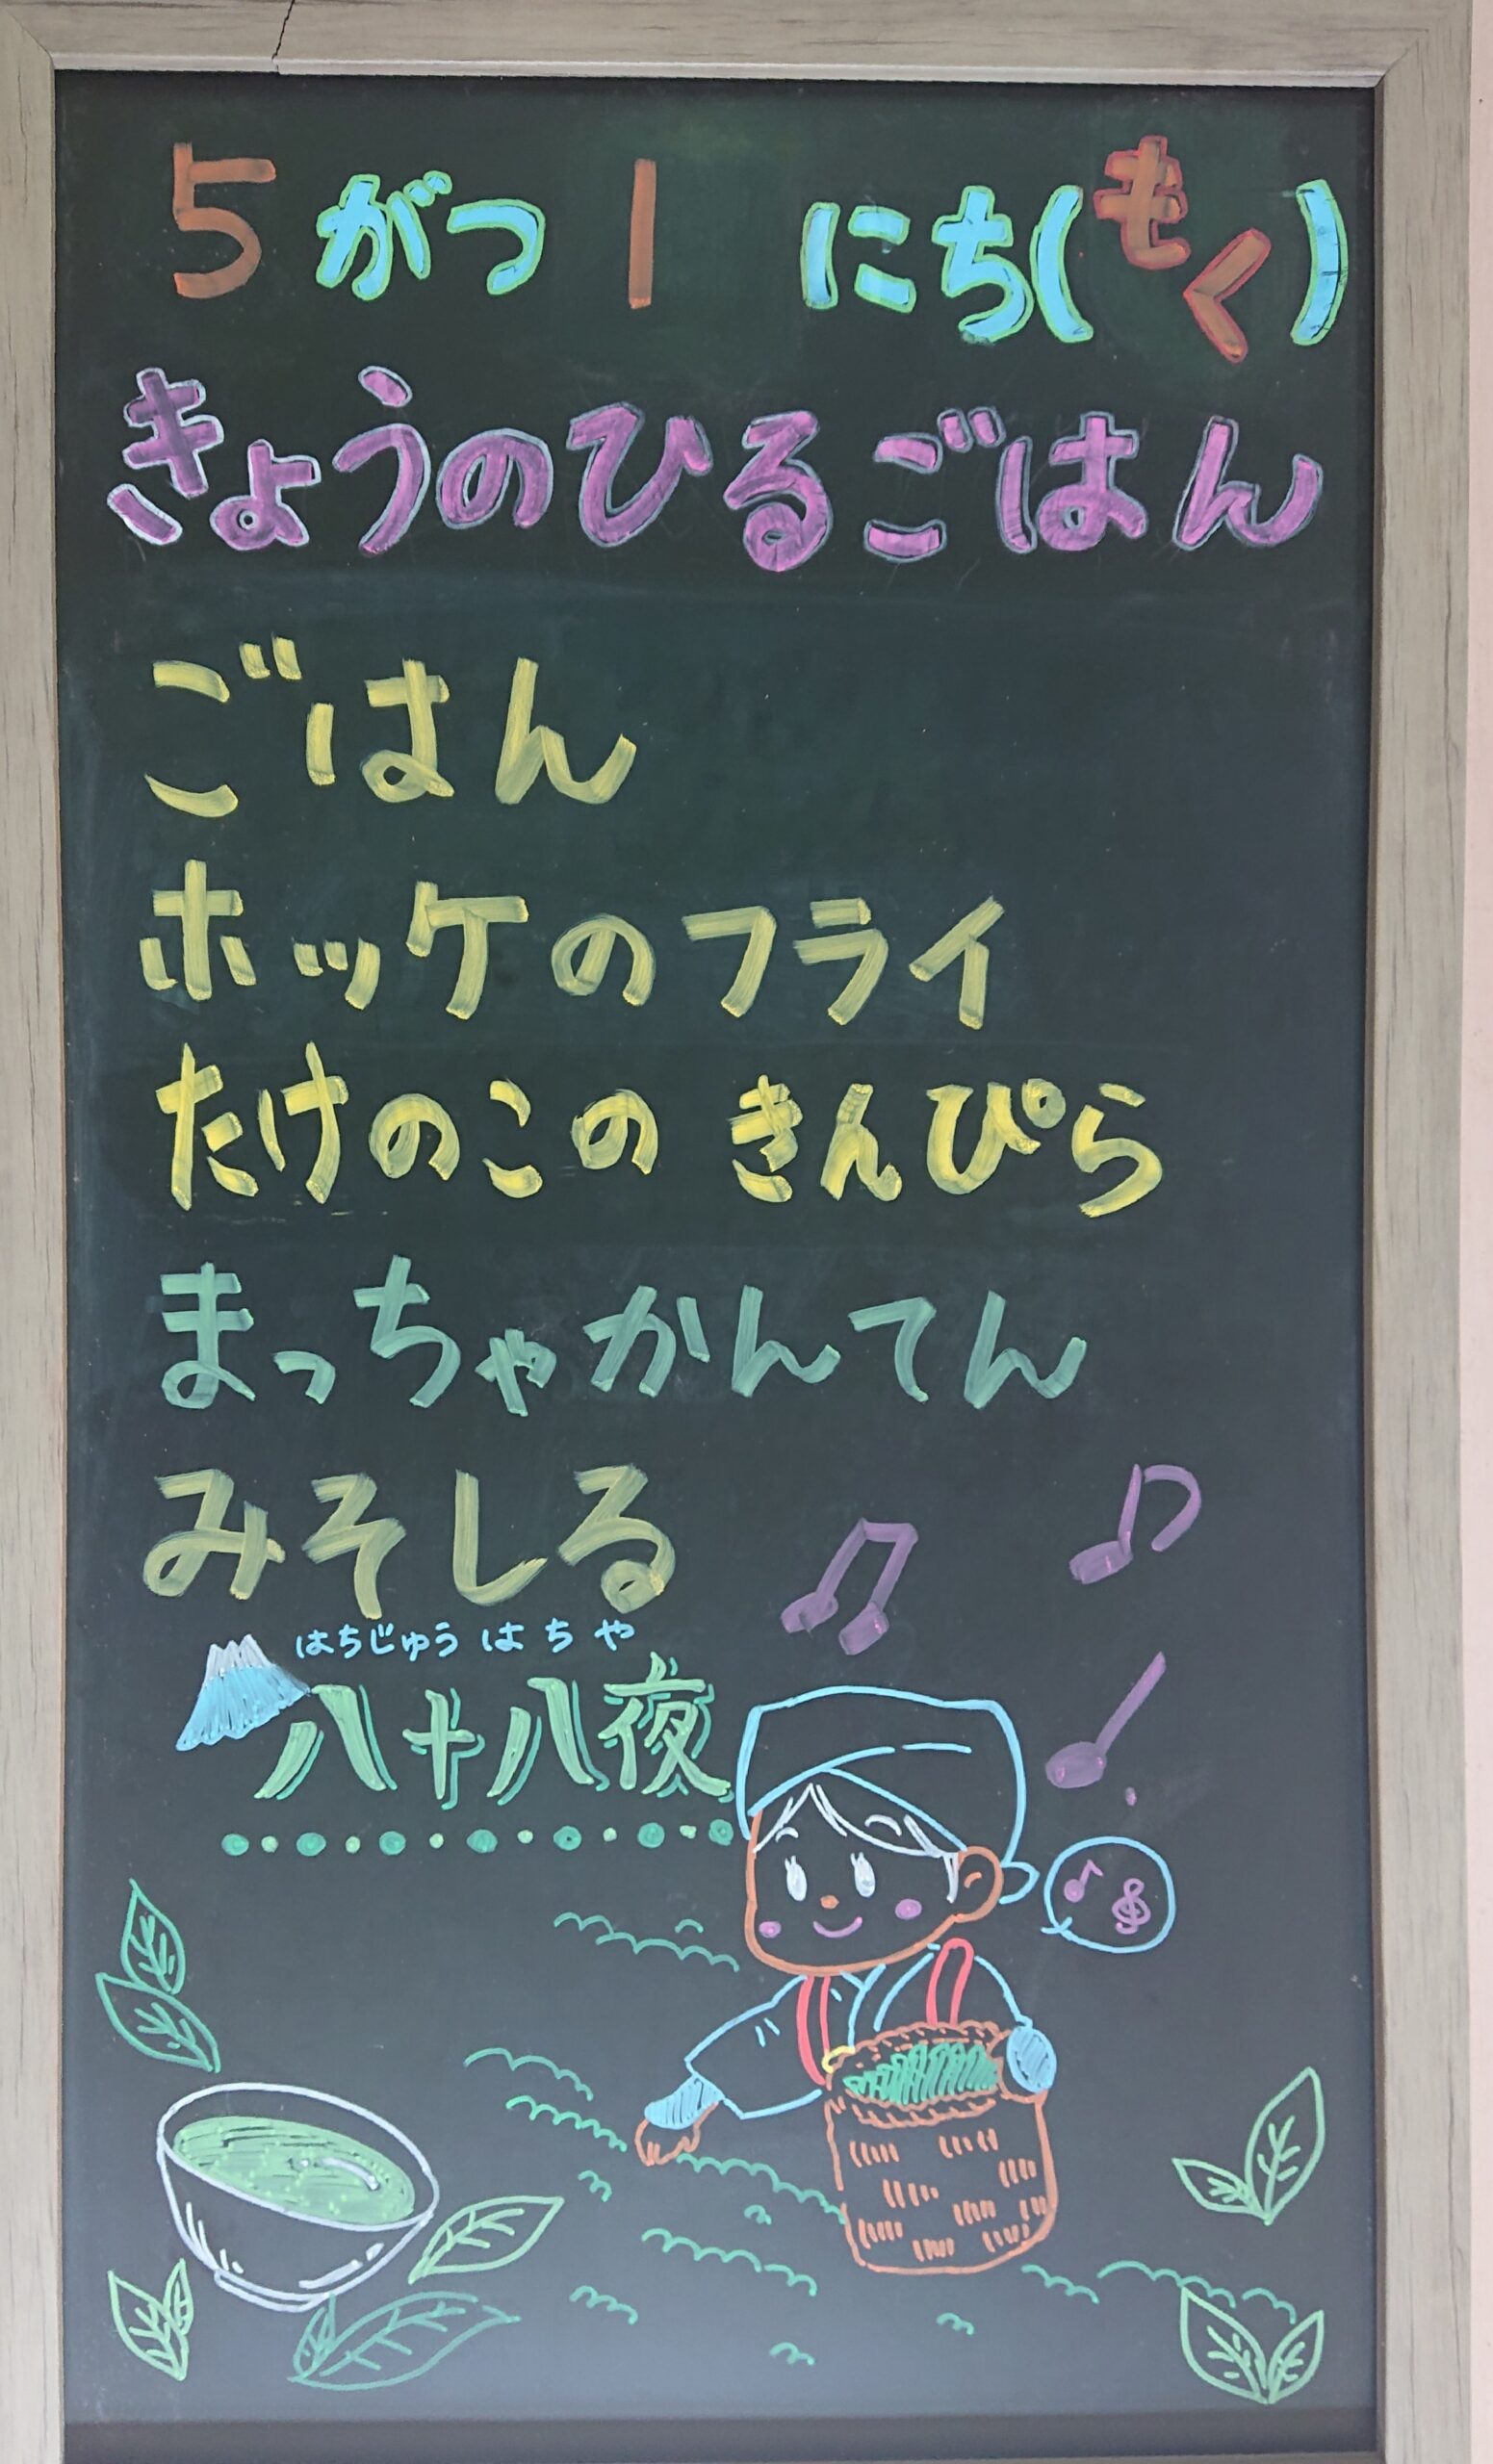 5がつ1にち(もく)
きょうのひるごはん
ごはん
ホッケのフライ
たけのこの きんぴら
まっちゃかんてん
みそしる
はちじゅうはちや
八十八夜